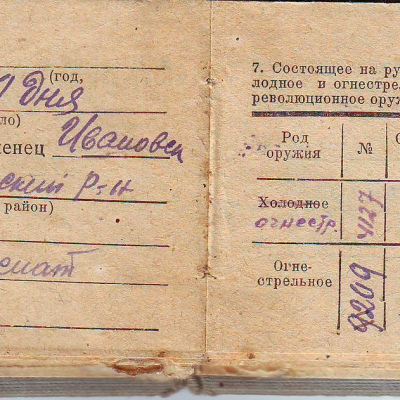 (год,
1 дня
ло)
женец Ивановск
ский р-н
район)
7. Состоящее на ру
лодное и огнестрел
революционное оруж
Род оружия
№
Холодное
огнестр.
4127
Огне-
стрельное
9209